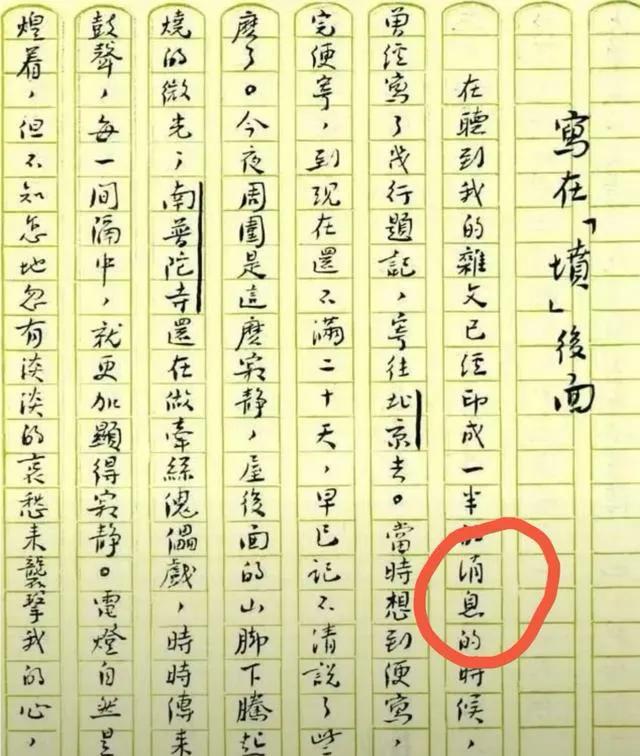 寫在「墳」後面
在聽到我的雜文已經印成一半的消息的時候，
曾經寫了幾行題記，寄往北京去。當時想到便寫，
完便寄，到現在還不滿二十天，早已記不清說了些
麼了。今夜周圍是這麼寂靜，屋後面的山腳下騰起
燒的微光；南普陀寺還在做牽絲傀儡戲，時時傳來
鼓聲，每一間隔中，就更加顯得寂靜。電燈自然是
煌着，但不知怎地忽有淡淡的哀愁來襲擊我的心，